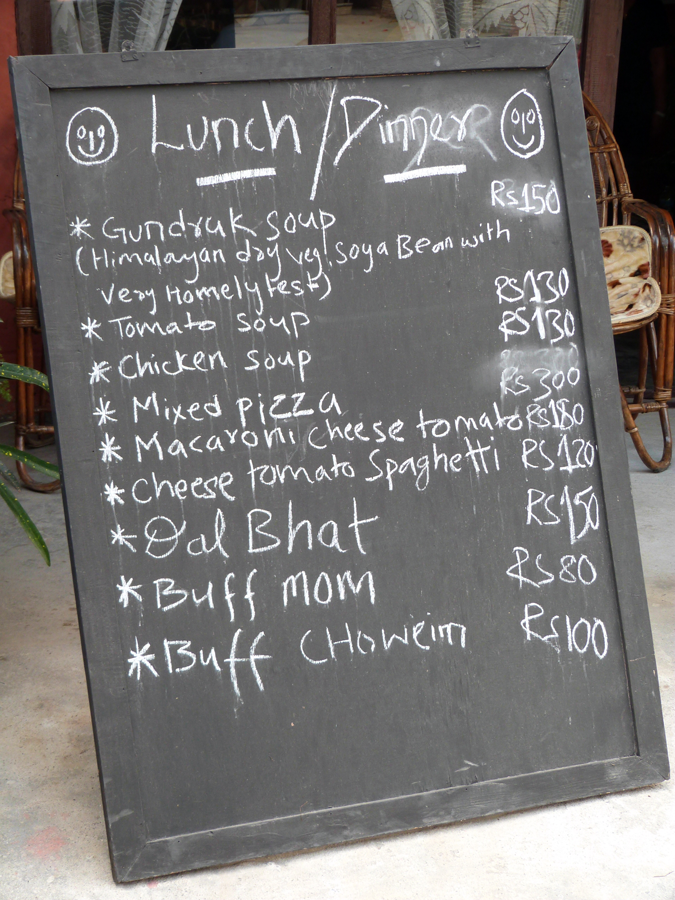 Lunch / Dinner
* Gundruk soup Rs150
(Himalayan dry veg, soya Bean with
very Homely test)
* Tomato soup Rs130
* Chicken soup Rs130
* Mixed pizza Rs300
* Macaroni cheese tomato Rs180
* Cheese tomato Spaghetti Rs120
* Dal Bhat Rs150
* Buff MOM Rs80
* Buff CHowein Rs100